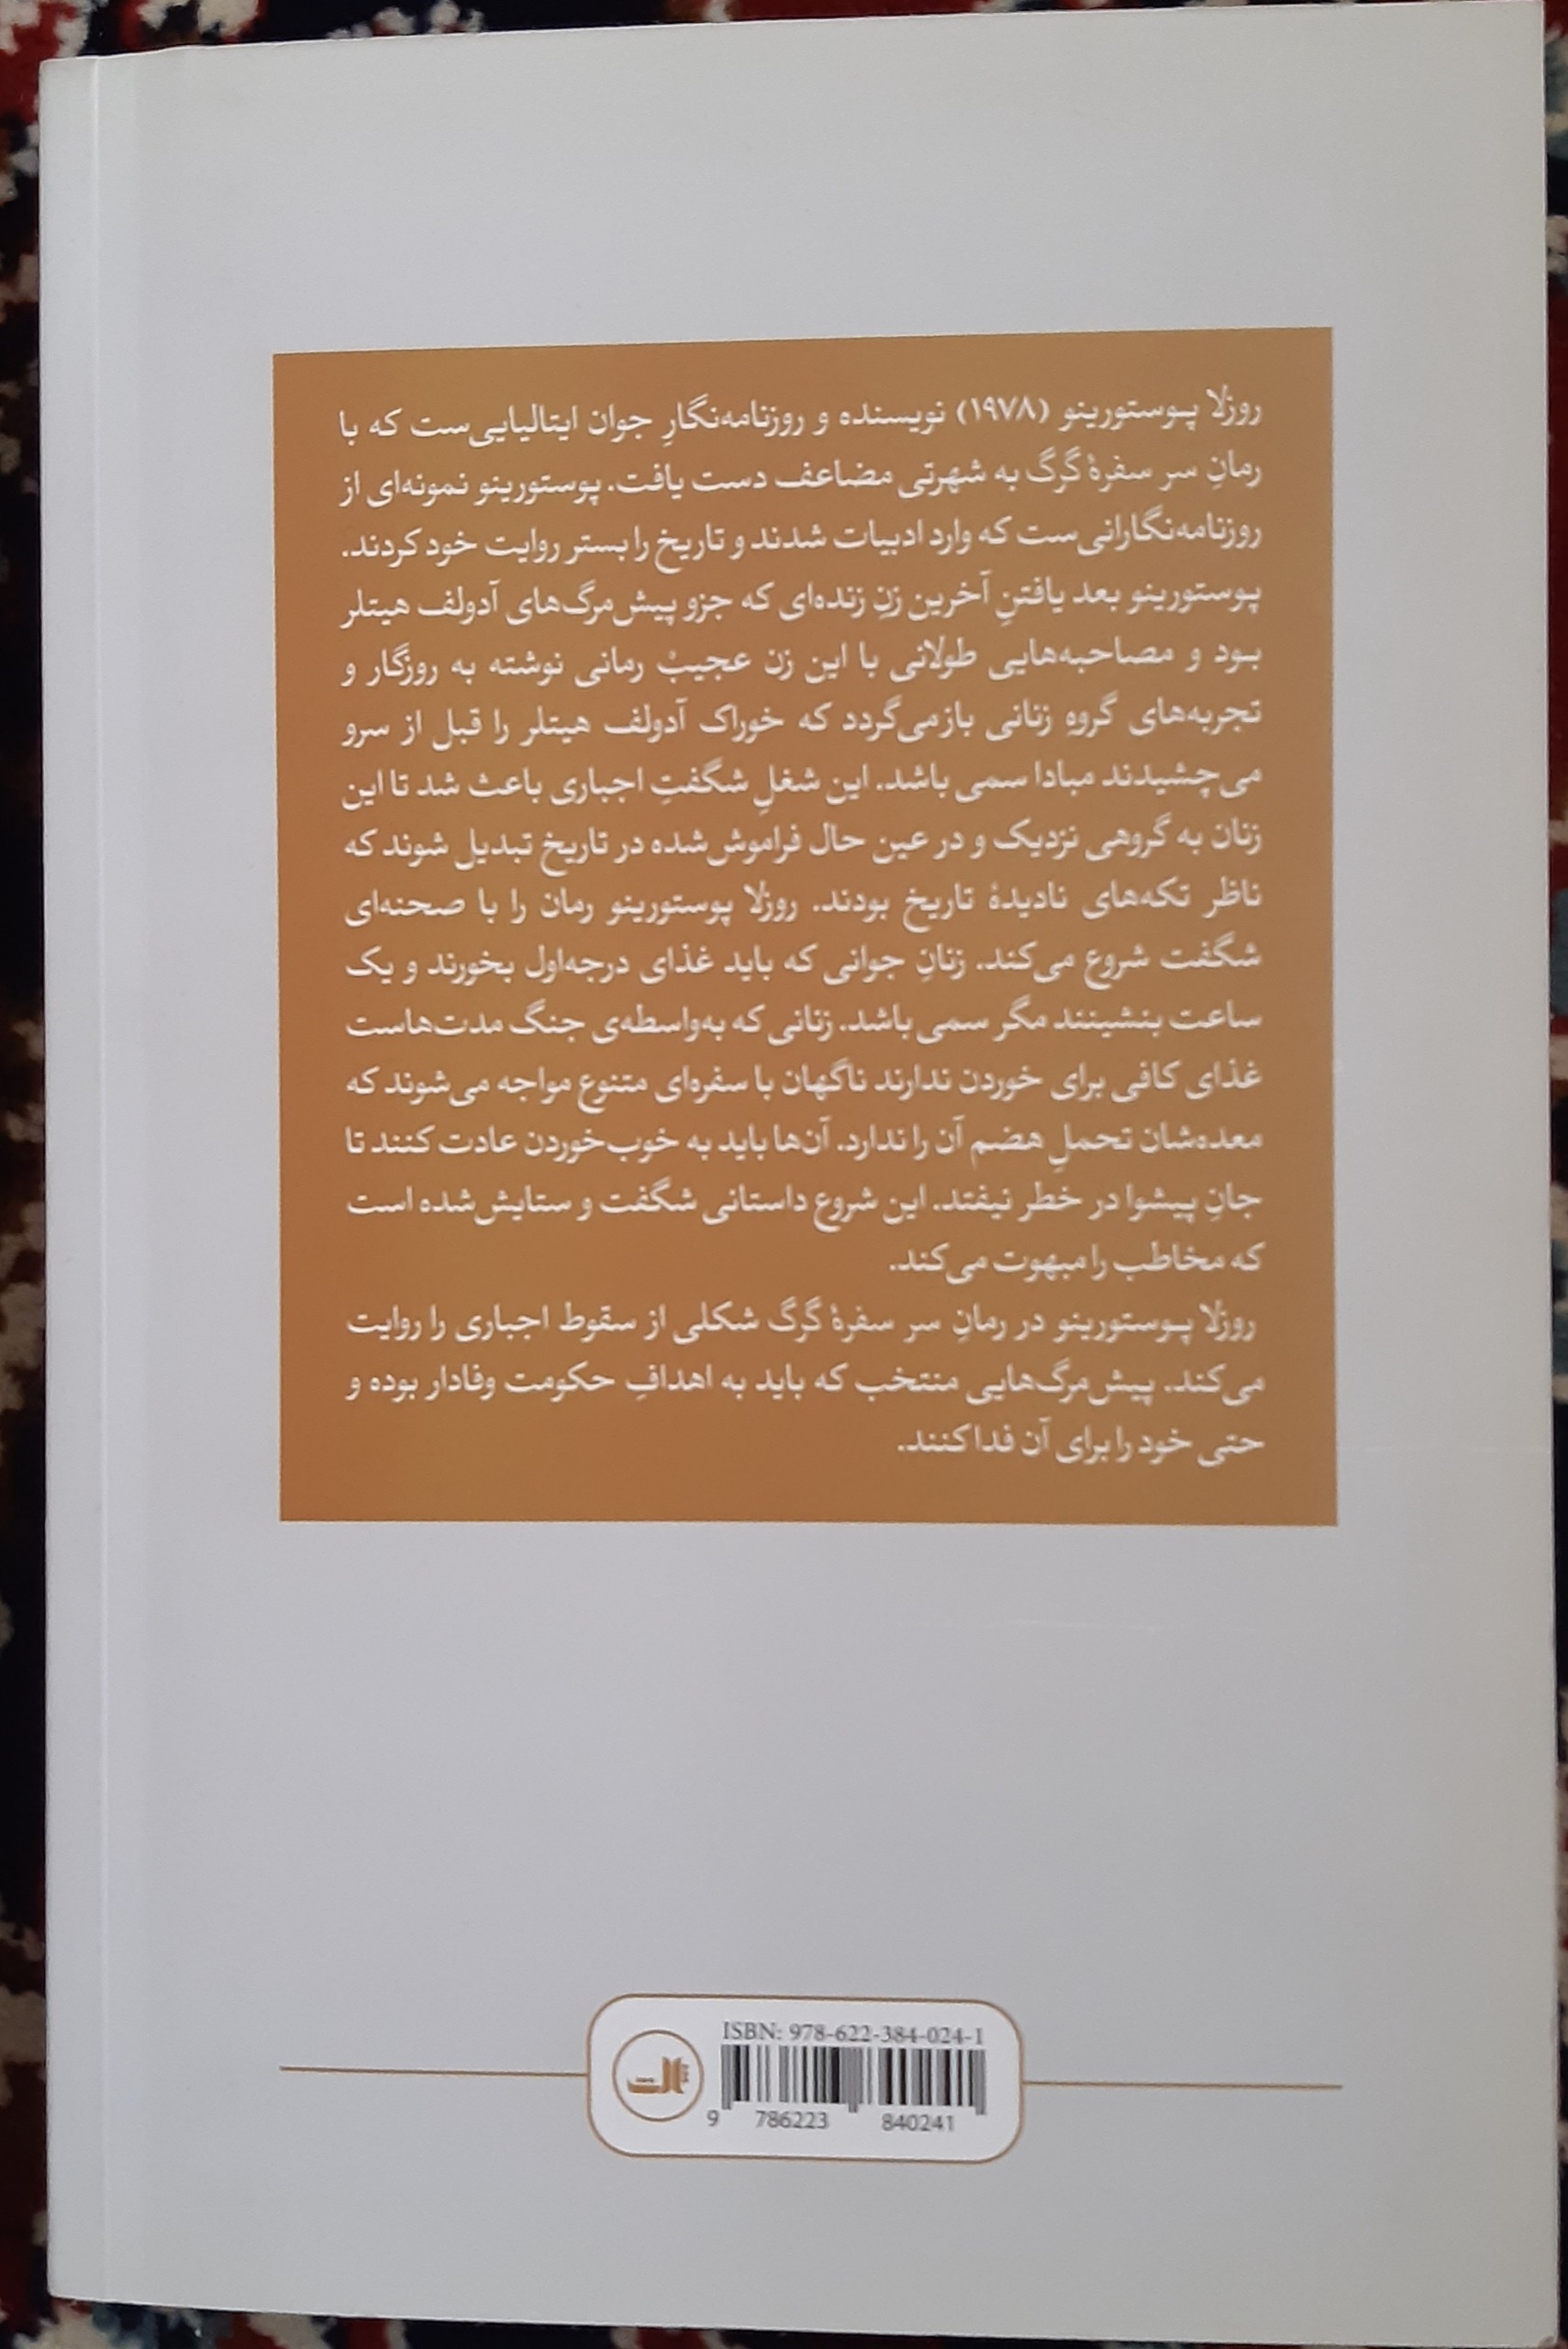 روزلا پوستورینو (۱۹۷۸) نویسنده و روزنامه‌نگارِ جوان ایتالیایی‌ست که با
رمانِ سر سفرهٔ گرگ به شهرتی مضاعف دست یافت. پوستورینو نمونه‌ای از
روزنامه‌نگارانی‌ست که وارد ادبیات شدند و تاریخ را بستر روایت خود کردند.
پوستورینو بعد یافتنِ آخرین زنِ زنده‌ای که جزو پیش‌مرگ‌های آدولف هیتلر
بود و مصاحبه‌هایی طولانی با این زن عجیبْ رمانی نوشته به روزگار و
تجربه‌های گروهِ زنانی بازمی‌گردد که خوراک آدولف هیتلر را قبل از سرو
می‌چشیدند مبادا سمی باشد. این شغلِ شگفتِ اجباری باعث شد تا این
زنان به گروهی نزدیک و در عین حال فراموش‌شده در تاریخ تبدیل شوند که
ناظر تکه‌های نادیدهٔ تاریخ بودند. روزلا پوستورینو رمان را با صحنه‌ای
شگفت شروع می‌کند. زنانِ جوانی که باید غذای درجه‌اول بخورند و یک
ساعت بنشینند مگر سمی باشد. زنانی که به‌واسطه‌ی جنگ مدت‌هاست
غذای کافی برای خوردن ندارند ناگهان با سفره‌ای متنوع مواجه می‌شوند که
معده‌شان تحملِ هضم آن را ندارد. آن‌ها باید به خوب‌خوردن عادت کنند تا
جانِ پیشوا در خطر نیفتد. این شروع داستانی شگفت و ستایش‌شده است
که مخاطب را مبهوت می‌کند.
روزلا پوستورینو در رمانِ سر سفرهٔ گرگ شکلی از سقوط اجباری را روایت
می‌کند. پیش‌مرگ‌هایی منتخب که باید به اهدافِ حکومت وفادار بوده و
حتی خود را برای آن فدا کنند.
ISBN: 978-622-384-024-1
ثالث
9 786223 840241